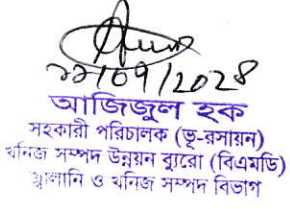 ২২/০৭/২০২৪
আজিজুল হক
সহকারী পরিচালক (ভূ-রসায়ন)
খনিজ সম্পদ উন্নয়ন ব্যুরো (বিএমডি)
জ্বালানি ও খনিজ সম্পদ বিভাগ